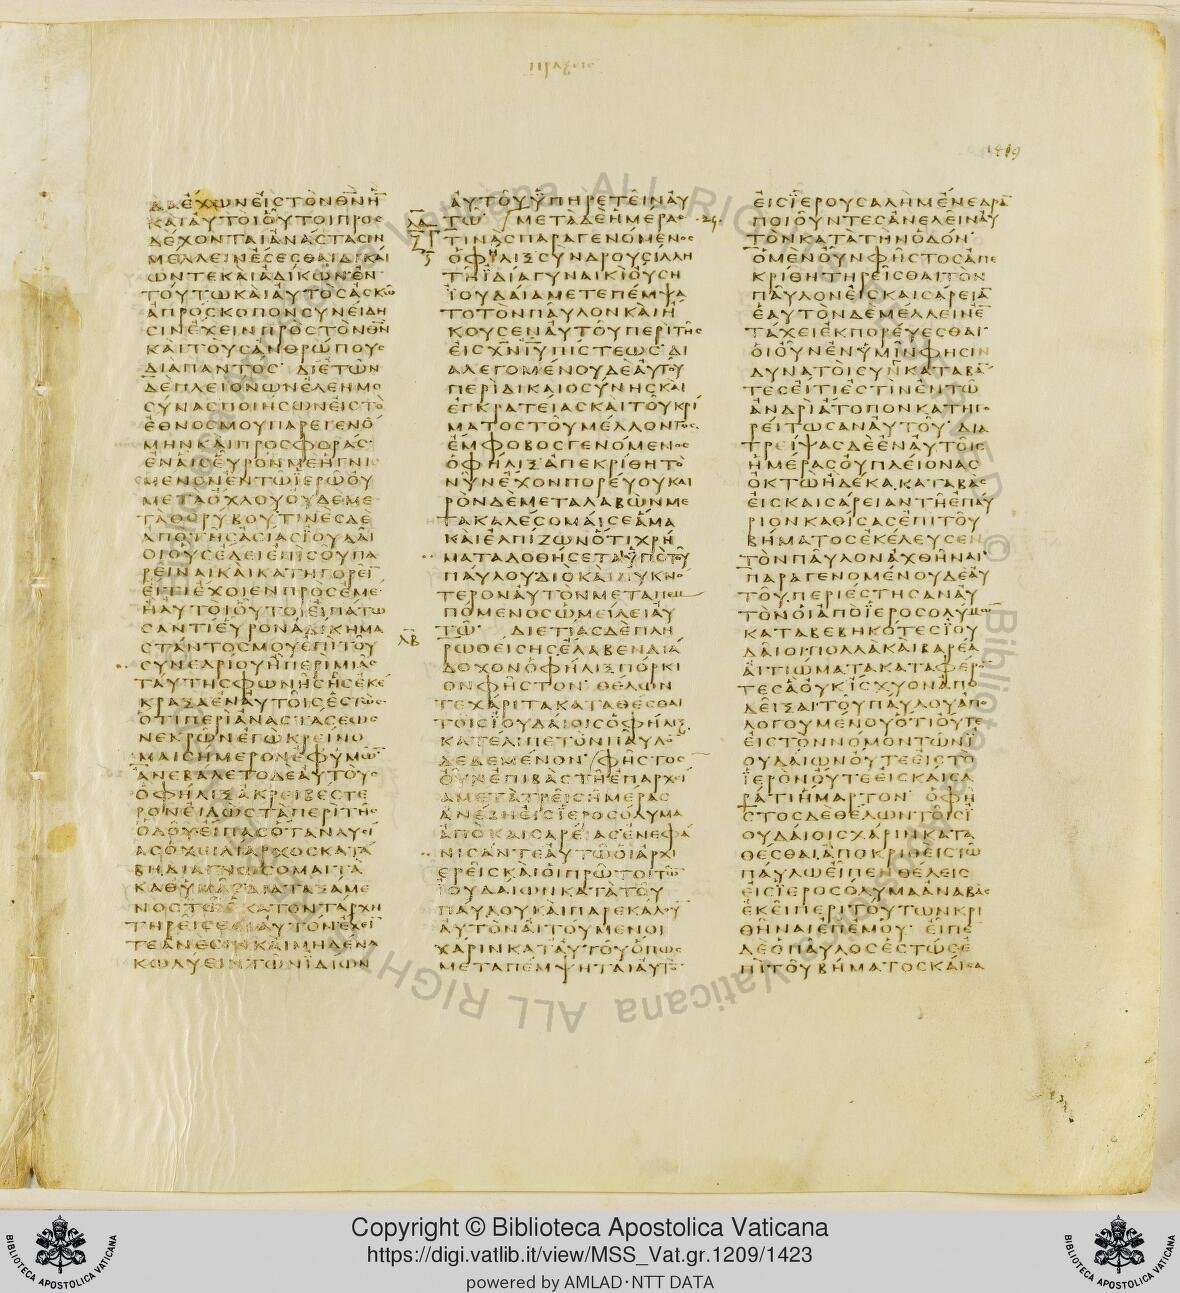 Πράξεις
1419
ΔΑ ΕΧΩΝ ΕΙΣ ΤΟΝ ΘΝ ΗΝ
ΚΑΙ ΑΥΤΟΙ ΟΥΤΟΙ ΠΡΟΣ
ΔΕΧΟΝΤΑΙ ΑΝΑΣΤΑΣΙΝ
ΜΕΛΛΕΙΝ ΕΣΕΣΘΑΙ ΔΙΚΑΙ
ΩΝ ΤΕ ΚΑΙ ΑΔΙΚΩΝ ΕΝ
ΤΟΥΤΩ ΚΑΙ ΑΥΤΟΣ ΑΣΚΩ
ΑΠΡΟΣΚΟΠΟΝ ΣΥΝΕΙΔΗ
ΣΙΝ ΕΧΕΙΝ ΠΡΟΣ ΤΟΝ ΘΝ
ΚΑΙ ΤΟΥΣ ΑΝΘΡΩΠΟΥΣ
ΔΙΑ ΠΑΝΤΟΣ ΔΙ ΕΤΩΝ
ΔΕ ΠΛΕΙΟΝΩΝ ΕΛΕΗΜΟ
ΣΥΝΑΣ ΠΟΙΗΣΩΝ ΕΙΣ ΤΟ
ΕΘΝΟΣ ΜΟΥ ΠΑΡΕΓΕΝΟ
ΜΗΝ ΚΑΙ ΠΡΟΣΦΟΡΑΣ
ΕΝ ΑΙΣ ΕΥΡΟΝ ΜΕ ΗΓΝΙΣ
ΜΕΝΟΝ ΕΝ ΤΩ ΙΕΡΩ ΟΥ
ΜΕΤΑ ΟΧΛΟΥ ΟΥΔΕ ΜΕ
ΤΑ ΘΟΡΥΒΟΥ ΤΙΝΕΣ ΔΕ
ΑΠΟ ΤΗΣ ΑΣΙΑΣ ΙΟΥΔΑΙ
ΟΙ ΟΥΣ ΕΔΕΙ ΕΠΙ ΣΟΥ ΠΑ
ΡΕΙΝΑΙ ΚΑΙ ΚΑΤΗΓΟΡΕΙ
ΕΙ ΤΙ ΕΧΟΙΕΝ ΠΡΟΣ ΕΜΕ
Η ΑΥΤΟΙ ΟΥΤΟΙ ΕΙΠΑΤΩ
ΣΑΝ ΤΙ ΕΥΡΟΝ ΑΔΙΚΗΜΑ
ΣΤΑΝΤΟΣ ΜΟΥ ΕΠΙ ΤΟΥ
ΣΥΝΕΔΡΙΟΥ Η ΠΕΡΙ ΜΙΑΣ
ΤΑΥΤΗΣ ΦΩΝΗΣ ΗΣ ΕΚΕ
ΚΡΑΞΑ ΕΝ ΑΥΤΟΙΣ ΕΣΤΩΣ
ΟΤΙ ΠΕΡΙ ΑΝΑΣΤΑΣΕΩΣ
ΝΕΚΡΩΝ ΕΓΩ ΚΡΕΙΝΟ
ΜΑΙ ΣΗΜΕΡΟΝ ΕΦ ΥΜΩ
ΑΝΕΒΑΛΕΤΟ ΔΕ ΑΥΤΟΥΣ
Ο ΦΗΛΙΞ ΑΚΡΕΙΒΕΣΤΕ
ΡΟΝ ΕΙΔΩΣ ΤΑ ΠΕΡΙ ΤΗΣ
ΟΔΟΥ ΕΙΠΑΣ ΟΤΑΝ ΛΥΣΙ
ΑΣ Ο ΧΕΙΛΙΑΡΧΟΣ ΚΑΤΑ
ΒΗ ΔΙΑΓΝΩΣΟΜΑΙ ΤΑ
ΚΑΘ ΥΜΑΣ ΔΙΑΤΑΞΑΜΕ
ΝΟΣ ΤΩ ΕΚΑΤΟΝΤΑΡΧΗ
ΤΗΡΕΙΣΘΑΙ ΑΥΤΟΝ ΕΧΕΙ
ΤΕ ΑΝΕΣΙΝ ΚΑΙ ΜΗΔΕΝΑ
ΚΩΛΥΕΙΝ ΤΩΝ ΙΔΙΩΝ
ΑΥΤΟΥ ΥΠΗΡΕΤΕΙΝ ΑΥ
ΤΩ ΜΕΤΑ ΔΕ ΗΜΕΡΑΣ
ΤΙΝΑΣ ΠΑΡΑΓΕΝΟΜΕΝΟΣ
Ο ΦΗΛΙΞ ΣΥΝ ΔΡΟΥΣΙΛΛΗ
ΤΗ ΙΔΙΑ ΓΥΝΑΙΚΙ ΟΥΣΗ
ΙΟΥΔΑΙΑ ΜΕΤΕΠΕΜΨΑ
ΤΟ ΤΟΝ ΠΑΥΛΟΝ ΚΑΙ Η
ΚΟΥΣΕΝ ΑΥΤΟΥ ΠΕΡΙ ΤΗΣ
ΕΙΣ ΧΝ ΙΝ ΠΙΣΤΕΩΣ ΔΙ
ΑΛΕΓΟΜΕΝΟΥ ΔΕ ΑΥΤΟΥ
ΠΕΡΙ ΔΙΚΑΙΟΣΥΝΗΣ ΚΑΙ
ΕΓΚΡΑΤΕΙΑΣ ΚΑΙ ΤΟΥ ΚΡΙ
ΜΑΤΟΣ ΤΟΥ ΜΕΛΛΟΝΤΟΣ
ΕΜΦΟΒΟΣ ΓΕΝΟΜΕΝΟΣ
Ο ΦΗΛΙΞ ΑΠΕΚΡΙΘΗ ΤΟ
ΝΥΝ ΕΧΟΝ ΠΟΡΕΥΟΥ ΚΑΙ
ΡΟΝ ΔΕ ΜΕΤΑΛΑΒΩΝ ΜΕ
ΤΑΚΑΛΕΣΟΜΑΙ ΣΕ ΑΜΑ
ΚΑΙ ΕΛΠΙΖΩΝ ΟΤΙ ΧΡΗ
ΜΑΤΑ ΔΟΘΗΣΕΤΑΙ ΥΠΟ ΤΟΥ
ΠΑΥΛΟΥ ΔΙΟ ΚΑΙ ΠΥΚΝΟ
ΤΕΡΟΝ ΑΥΤΟΝ ΜΕΤΑΠΕΜ
ΠΟΜΕΝΟΣ ΩΜΕΙΛΕΙ ΑΥ
ΤΩ ΔΙΕΤΙΑΣ ΔΕ ΠΛΗ
ΡΩΘΕΙΣΗΣ ΕΛΑΒΕΝ ΔΙΑ
ΔΟΧΟΝ Ο ΦΗΛΙΞ ΠΟΡΚΙ
ΟΝ ΦΗΣΤΟΝ ΘΕΛΩΝ
ΤΕ ΧΑΡΙΤΑ ΚΑΤΑΘΕΣΘΑΙ
ΤΟΙΣ ΙΟΥΔΑΙΟΙΣ Ο ΦΗΛΙΞ
ΚΑΤΕΛΙΠΕ ΤΟΝ ΠΑΥΛΟ
ΔΕΔΕΜΕΝΟΝ ΦΗΣΤΟΣ
ΟΥΝ ΕΠΙΒΑΣ ΤΗ ΕΠΑΡΧΕΙ
Α ΜΕΤΑ ΤΡΕΙΣ ΗΜΕΡΑΣ
ΑΝΕΒΗ ΕΙΣ ΙΕΡΟΣΟΛΥΜΑ
ΑΠΟ ΚΑΙΣΑΡΕΙΑΣ ΕΝΕΦΑ
ΝΙΣΑΝ ΤΕ ΑΥΤΩ ΟΙ ΑΡΧΙ
ΕΡΕΙΣ ΚΑΙ ΟΙ ΠΡΩΤΟΙ ΤΩ
ΙΟΥΔΑΙΩΝ ΚΑΤΑ ΤΟΥ
ΠΑΥΛΟΥ ΚΑΙ ΠΑΡΕΚΑΛΟΥ
ΑΥΤΟΝ ΑΙΤΟΥΜΕΝΟΙ
ΧΑΡΙΝ ΚΑΤ ΑΥΤΟΥ ΟΠΩΣ
ΜΕΤΑΠΕΜΨΗΤΑΙ ΑΥΤΟ
ΕΙΣ ΙΕΡΟΥΣΑΛΗΜ ΕΝΕΔΡΑ
ΠΟΙΟΥΝΤΕΣ ΑΝΕΛΕΙΝ ΑΥ
ΤΟΝ ΚΑΤΑ ΤΗΝ ΟΔΟΝ
Ο ΜΕΝ ΟΥΝ ΦΗΣΤΟΣ ΑΠΕ
ΚΡΙΘΗ ΤΗΡΕΙΣΘΑΙ ΤΟΝ
ΠΑΥΛΟΝ ΕΙΣ ΚΑΙΣΑΡΕΙΑ
ΕΑΥΤΟΝ ΔΕ ΜΕΛΛΕΙΝ Ε
ΤΑΧΕΙ ΕΚΠΟΡΕΥΕΣΘΑΙ
ΟΙ ΟΥΝ ΕΝ ΥΜΙΝ ΦΗΣΙΝ
ΔΥΝΑΤΟΙ ΣΥΝΚΑΤΑΒΑ
ΤΕΣ ΕΙ ΤΙ ΕΣΤΙΝ ΕΝ ΤΩ
ΑΝΔΡΙ ΑΤΟΠΟΝ ΚΑΤΗΓΟ
ΡΕΙΤΩΣΑΝ ΑΥΤΟΥ ΔΙΑ
ΤΡΕΙΨΑΣ ΔΕ ΕΝ ΑΥΤΟΙΣ
ΗΜΕΡΑΣ ΟΥ ΠΛΕΙΟΝΑΣ
ΟΚΤΩ Η ΔΕΚΑ ΚΑΤΑΒΑΣ
ΕΙΣ ΚΑΙΣΑΡΕΙΑΝ ΤΗ ΕΠΑΥ
ΡΙΟΝ ΚΑΘΙΣΑΣ ΕΠΙ ΤΟΥ
ΒΗΜΑΤΟΣ ΕΚΕΛΕΥΣΕΝ
ΤΟΝ ΠΑΥΛΟΝ ΑΧΘΗΝΑΙ
ΠΑΡΑΓΕΝΟΜΕΝΟΥ ΔΕ ΑΥ
ΤΟΥ ΠΕΡΙΕΣΤΗΣΑΝ ΑΥ
ΤΟΝ ΟΙ ΑΠΟ ΙΕΡΟΣΟΛΥΜΩΝ
ΚΑΤΑΒΕΒΗΚΟΤΕΣ ΙΟΥ
ΔΑΙΟΙ ΠΟΛΛΑ ΚΑΙ ΒΑΡΕΑ
ΑΙΤΙΩΜΑΤΑ ΚΑΤΑΦΕΡΟ
ΤΕΣ Α ΟΥΚ ΙΣΧΥΟΝ ΑΠΟ
ΔΕΙΞΑΙ ΤΟΥ ΠΑΥΛΟΥ ΑΠΟ
ΛΟΓΟΥΜΕΝΟΥ ΟΤΙ ΟΥΤΕ
ΕΙΣ ΤΟΝ ΝΟΜΟΝ ΤΩΝ Ι
ΟΥΔΑΙΩΝ ΟΥΤΕ ΕΙΣ ΤΟ
ΙΕΡΟΝ ΟΥΤΕ ΕΙΣ ΚΑΙΣΑ
ΡΑ ΤΙ ΗΜΑΡΤΟΝ Ο ΦΗ
ΣΤΟΣ ΔΕ ΘΕΛΩΝ ΤΟΙΣ Ι
ΟΥΔΑΙΟΙΣ ΧΑΡΙΝ ΚΑΤΑ
ΘΕΣΘΑΙ ΑΠΟΚΡΙΘΕΙΣ ΤΩ
ΠΑΥΛΩ ΕΙΠΕΝ ΘΕΛΕΙΣ
ΕΙΣ ΙΕΡΟΣΟΛΥΜΑ ΑΝΑΒΑΣ
ΕΚΕΙ ΠΕΡΙ ΤΟΥΤΩΝ ΚΡΙ
ΘΗΝΑΙ ΕΠ ΕΜΟΥ ΕΙΠΕ
ΔΕ Ο ΠΑΥΛΟΣ ΕΣΤΩΣ Ε
ΠΙ ΤΟΥ ΒΗΜΑΤΟΣ ΚΑΙΣΑ
ΛΑ
ΛΒ
Copyright © Biblioteca Apostolica Vaticana
https://digi.vatlib.it/view/MSS_Vat.gr.1209/1423
powered by AMLAD·NTT DATA
BIBLIOTECA APOSTOLICA VATICANA
BIBLIOTECA APOSTOLICA VATICANA